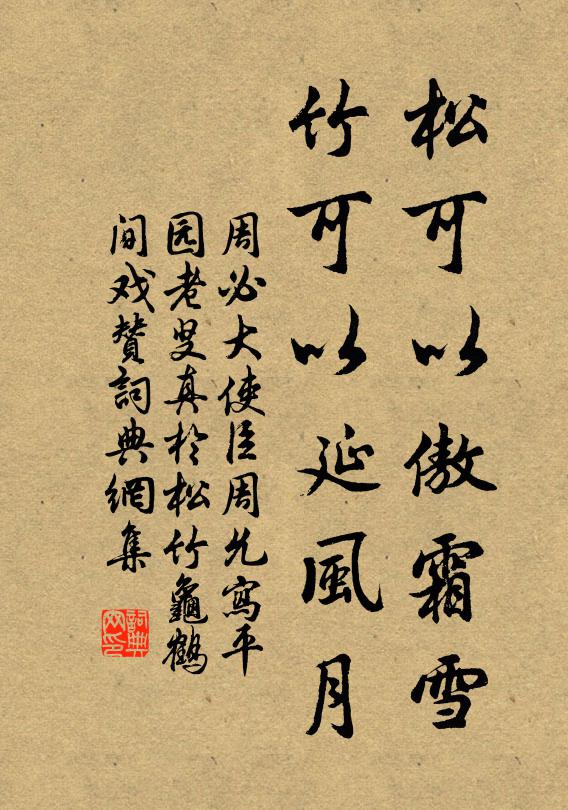 松可以傲霜雪
竹可以延風月
周必大使臣周允寫平
园老叟真於松竹龜鶴
间戏贊詞典網集
詞典
网印